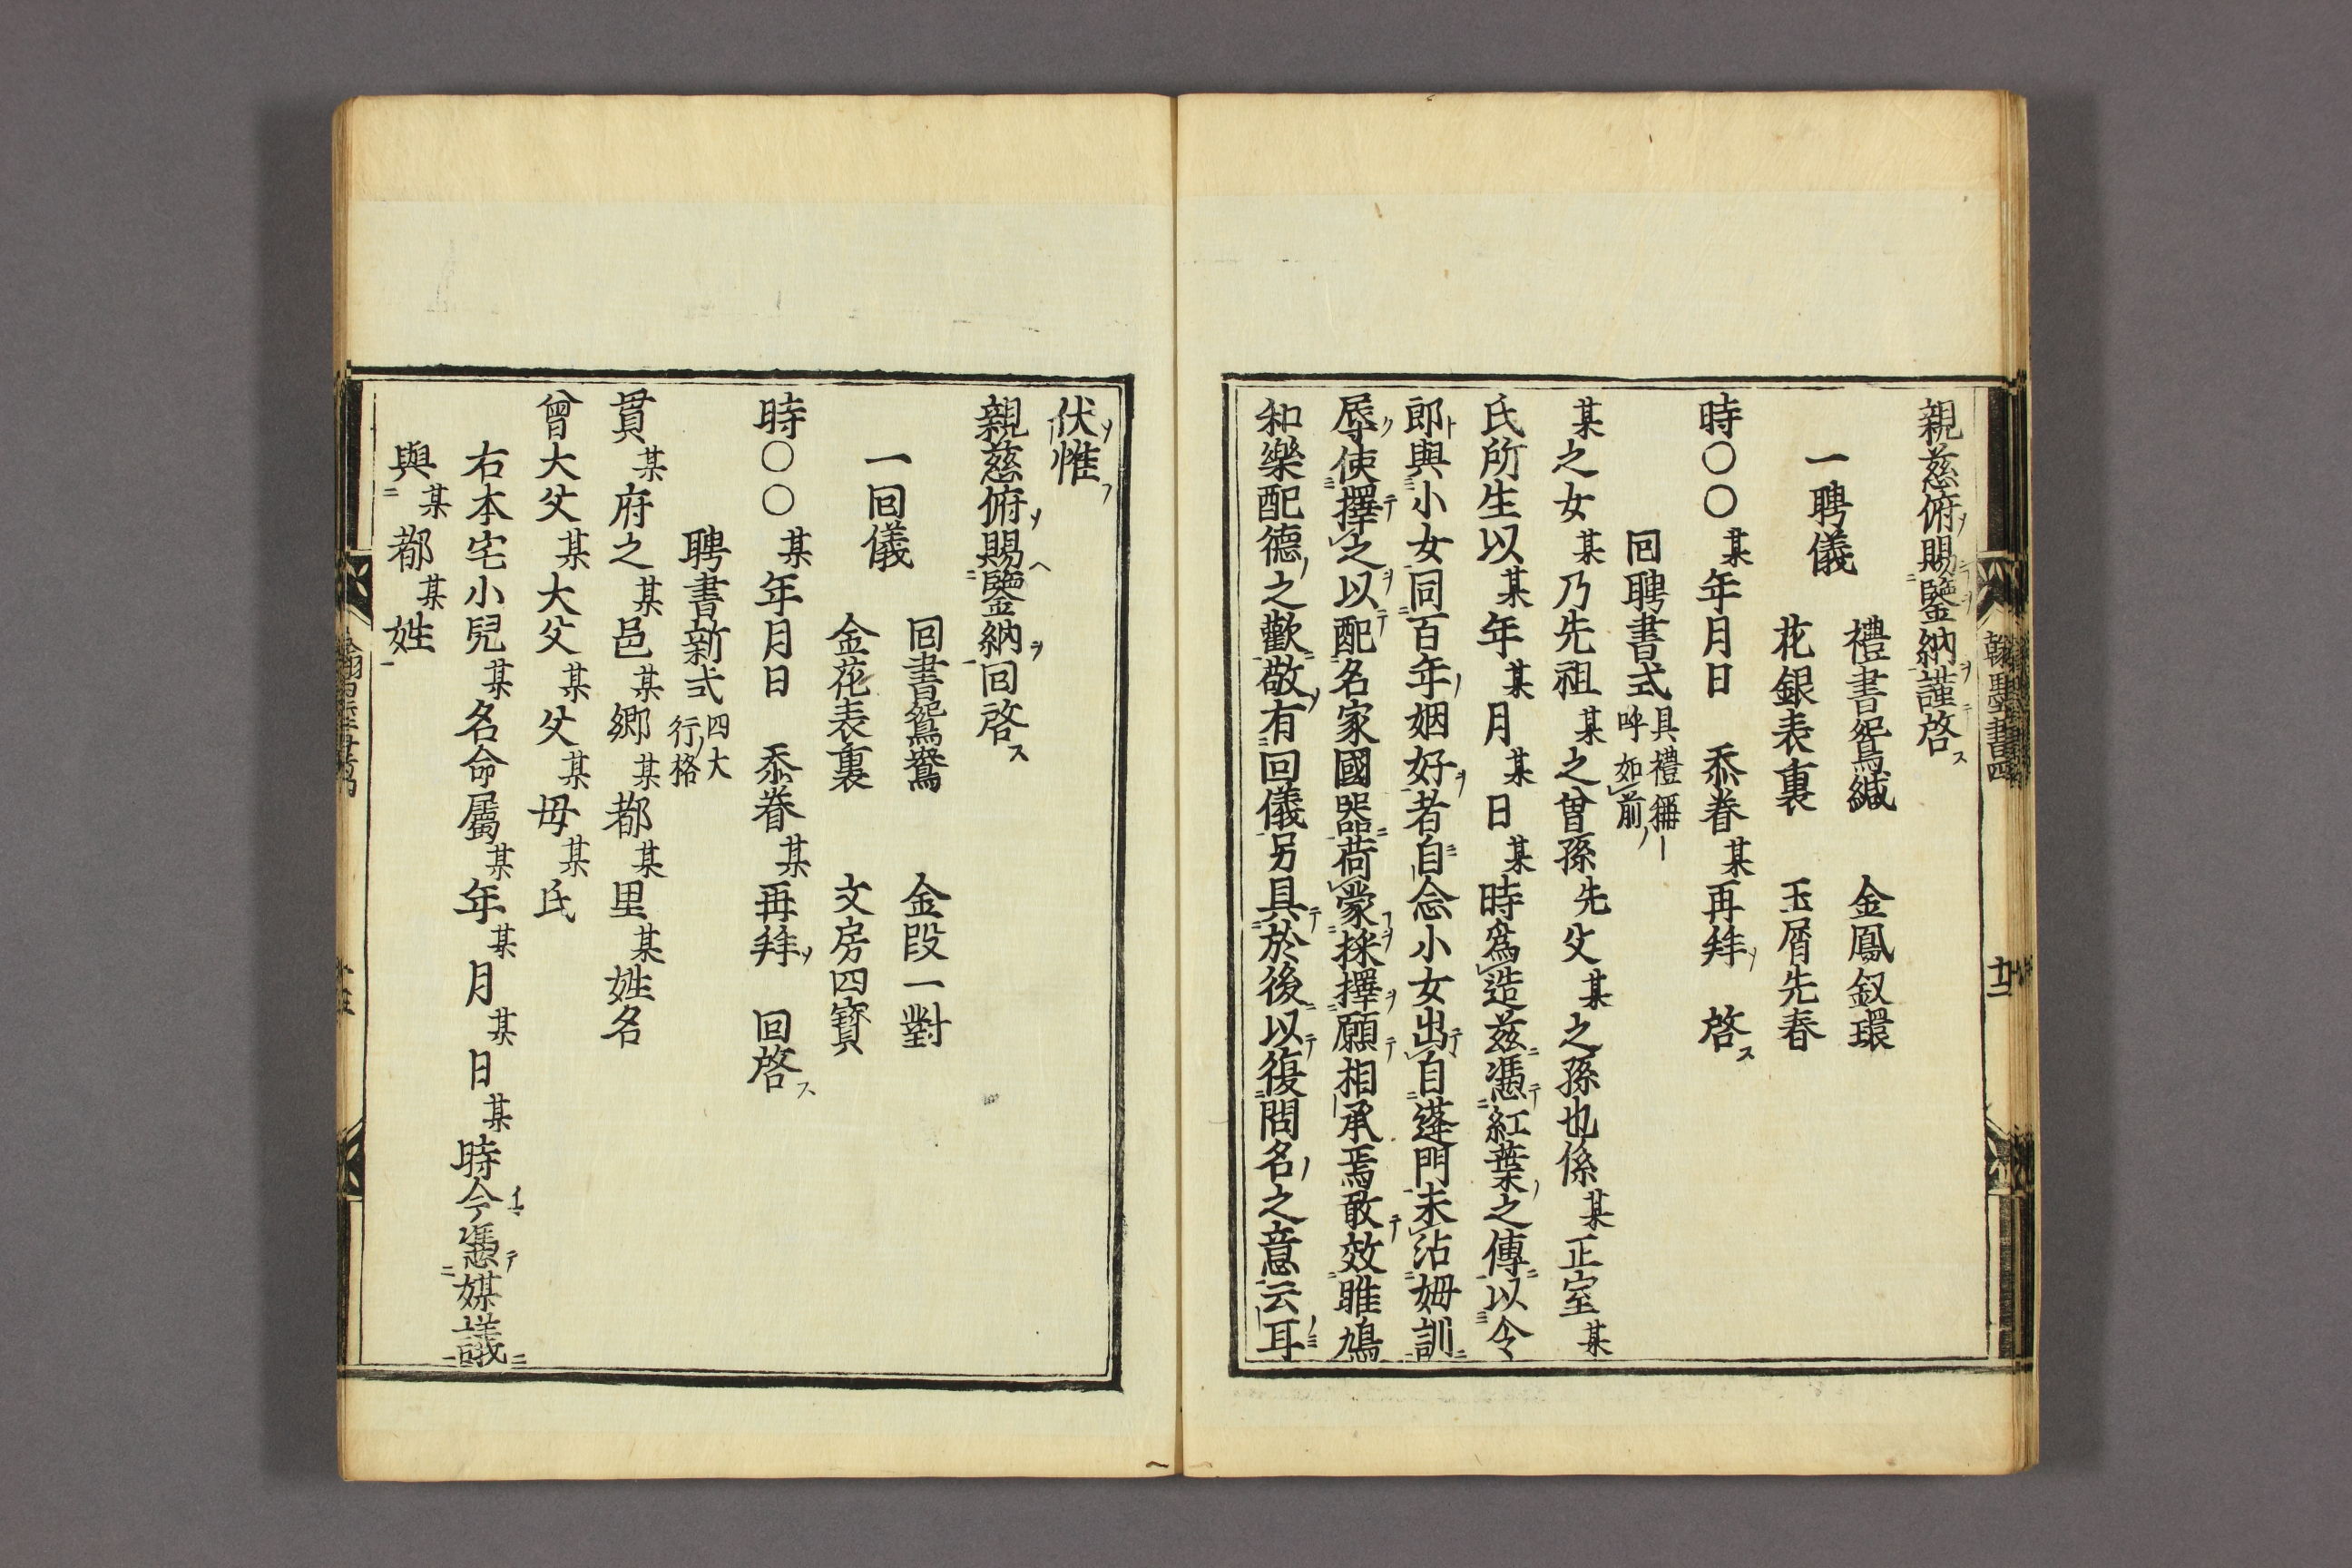 親慈俯賜鑒納謹啓
一聘儀
禮書鴛鴦緘 金鳳釵環
花銀表裏 玉屑先春
時〇〇某年月日 忝眷某再拜 啓
回聘書式 具禮 稱呼如前
某之女某乃先祖某之曾孫先父某之孫也係某正室某
氏所生以某年某月某日某時爲造茲憑紅葉之傳以令
郎與小女同百年姻好者自念小女出自蓬門未沾姆訓
辱使擇之以配名家國器荷蒙採擇願相承焉敢效雎鳩
和樂配德之歡敬有回儀另具於後以復問名之意云耳
伏惟
親慈俯賜鑒納回啓
一回儀
回書鴛鴦 金段一對
金花表裏 文房四寳
時〇〇某年月日 忝眷某再拜 回啓
聘書新式 四大行格
貫某府之某邑某鄉某都某里某姓名
曾大父某大父某父某母某氏
右本宅小兒某名命屬某年某月某日某時今憑媒議
與某都某姓